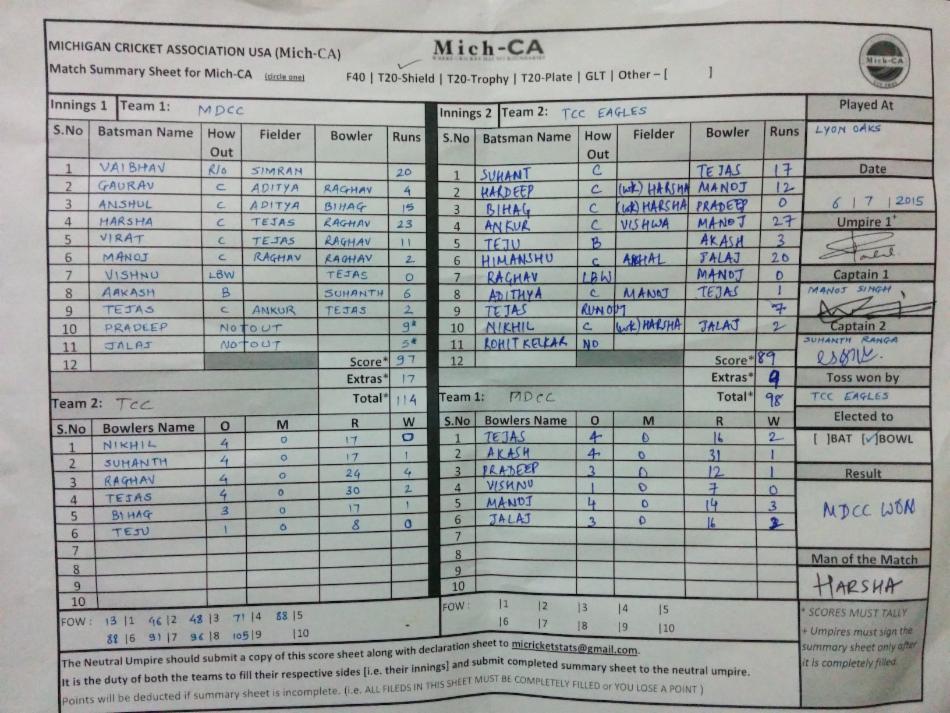 MICHIGAN CRICKET ASSOCIATION USA (Mich-CA)
Mich-CA
Match Summary Sheet for Mich-CA (circle one) F40 | T20-Shield | T20-Trophy | T20-Plate | GLT | Other – [ ]
Mich-CA
Innings 1 Team 1: MDCC
S.No Batsman Name How Out Fielder Bowler Runs
1 VAIBHAV R/o SIMRAN 20
2 GAURAV C ADITYA RAGHAV 4
3 ANSHUL C ADITYA BIHAG 15
4 HARSHA C TEJAS RAGHAV 23
5 VIRAT C TEJAS RAGHAV 11
6 MANOJ C RAGHAV RAGHAV 2
7 VISHNU LBW TEJAS 0
8 AAKASH B SUHANTH 6
9 TEJAS C ANKUR TEJAS 2
10 PRADEEP NOTOUT 9*
11 JALAJ NOTOUT 5*
12 Score* 97
Extras* 17
Total* 114
Team 2: TCC
S.No Bowlers Name O M R W
1 NIKHIL 4 0 17 0
2 SUMANTH 4 0 17 1
3 RAGHAV 4 0 24 4
4 TEJAS 4 0 30 2
5 BIHAG 3 0 17 1
6 TEJU 1 0 8 0
7
8
9
10
FOW : 13 |1 46 |2 48 |3 71 |4 88 |5
88 |6 91 |7 96 |8 105 |9 |10
Innings 2 Team 2: TCC EAGLES
S.No Batsman Name How Out Fielder Bowler Runs
1 SUHANT C TEJAS 17
2 HARDEEP C (wk) HARSHA MANOJ 12
3 BIHAG C (wk) HARSHA PRADEEP 0
4 ANKUR C VISHWA MANOJ 27
5 TEJU B AKASH 3
6 HIMANSHU C JALAJ 20
7 RAGHAV LBW MANOJ 0
8 ADITHYA C MANOJ TEJAS 1
9 TEJAS RUNOUT 7
10 NIKHIL C (wk) HARSHA JALAJ 2
11 ROHIT KELKAR NO
12 Score* 89
Extras* 9
Total* 98
Team 1: MDCC
S.No Bowlers Name O M R W
1 TEJAS 4 0 16 2
2 AKASH 4 0 31 1
3 PRADEEP 3 0 12 1
4 VISHNU 1 0 7 0
5 MANOJ 4 0 14 3
6 JALAJ 3 0 16
7
8
9
10
FOW : |1 |2 |3 |4 |5
|6 |7 |8 |9 |10
Played At
LYON OAKS
Date
6 / 7 / 2015
Umpire 1+
Captain 1
MANOJ SINGH
Captain 2
SUHANTH RANGA
Toss won by
TCC EAGLES
Elected to
[ ]BAT [✓]BOWL
Result
MDCC WON
Man of the Match
HARSHA
* SCORES MUST TALLY
+ Umpires must sign the
summary sheet only after
it is completely filled.
The Neutral Umpire should submit a copy of this score sheet along with declaration sheet to micricketstats@gmail.com.
It is the duty of both the teams to fill their respective sides [i.e. their innings] and submit completed summary sheet to the neutral umpire.
Points will be deducted if summary sheet is incomplete. (i.e. ALL FILEDS IN THIS SHEET MUST BE COMPLETELY FILLED or YOU LOSE A POINT )